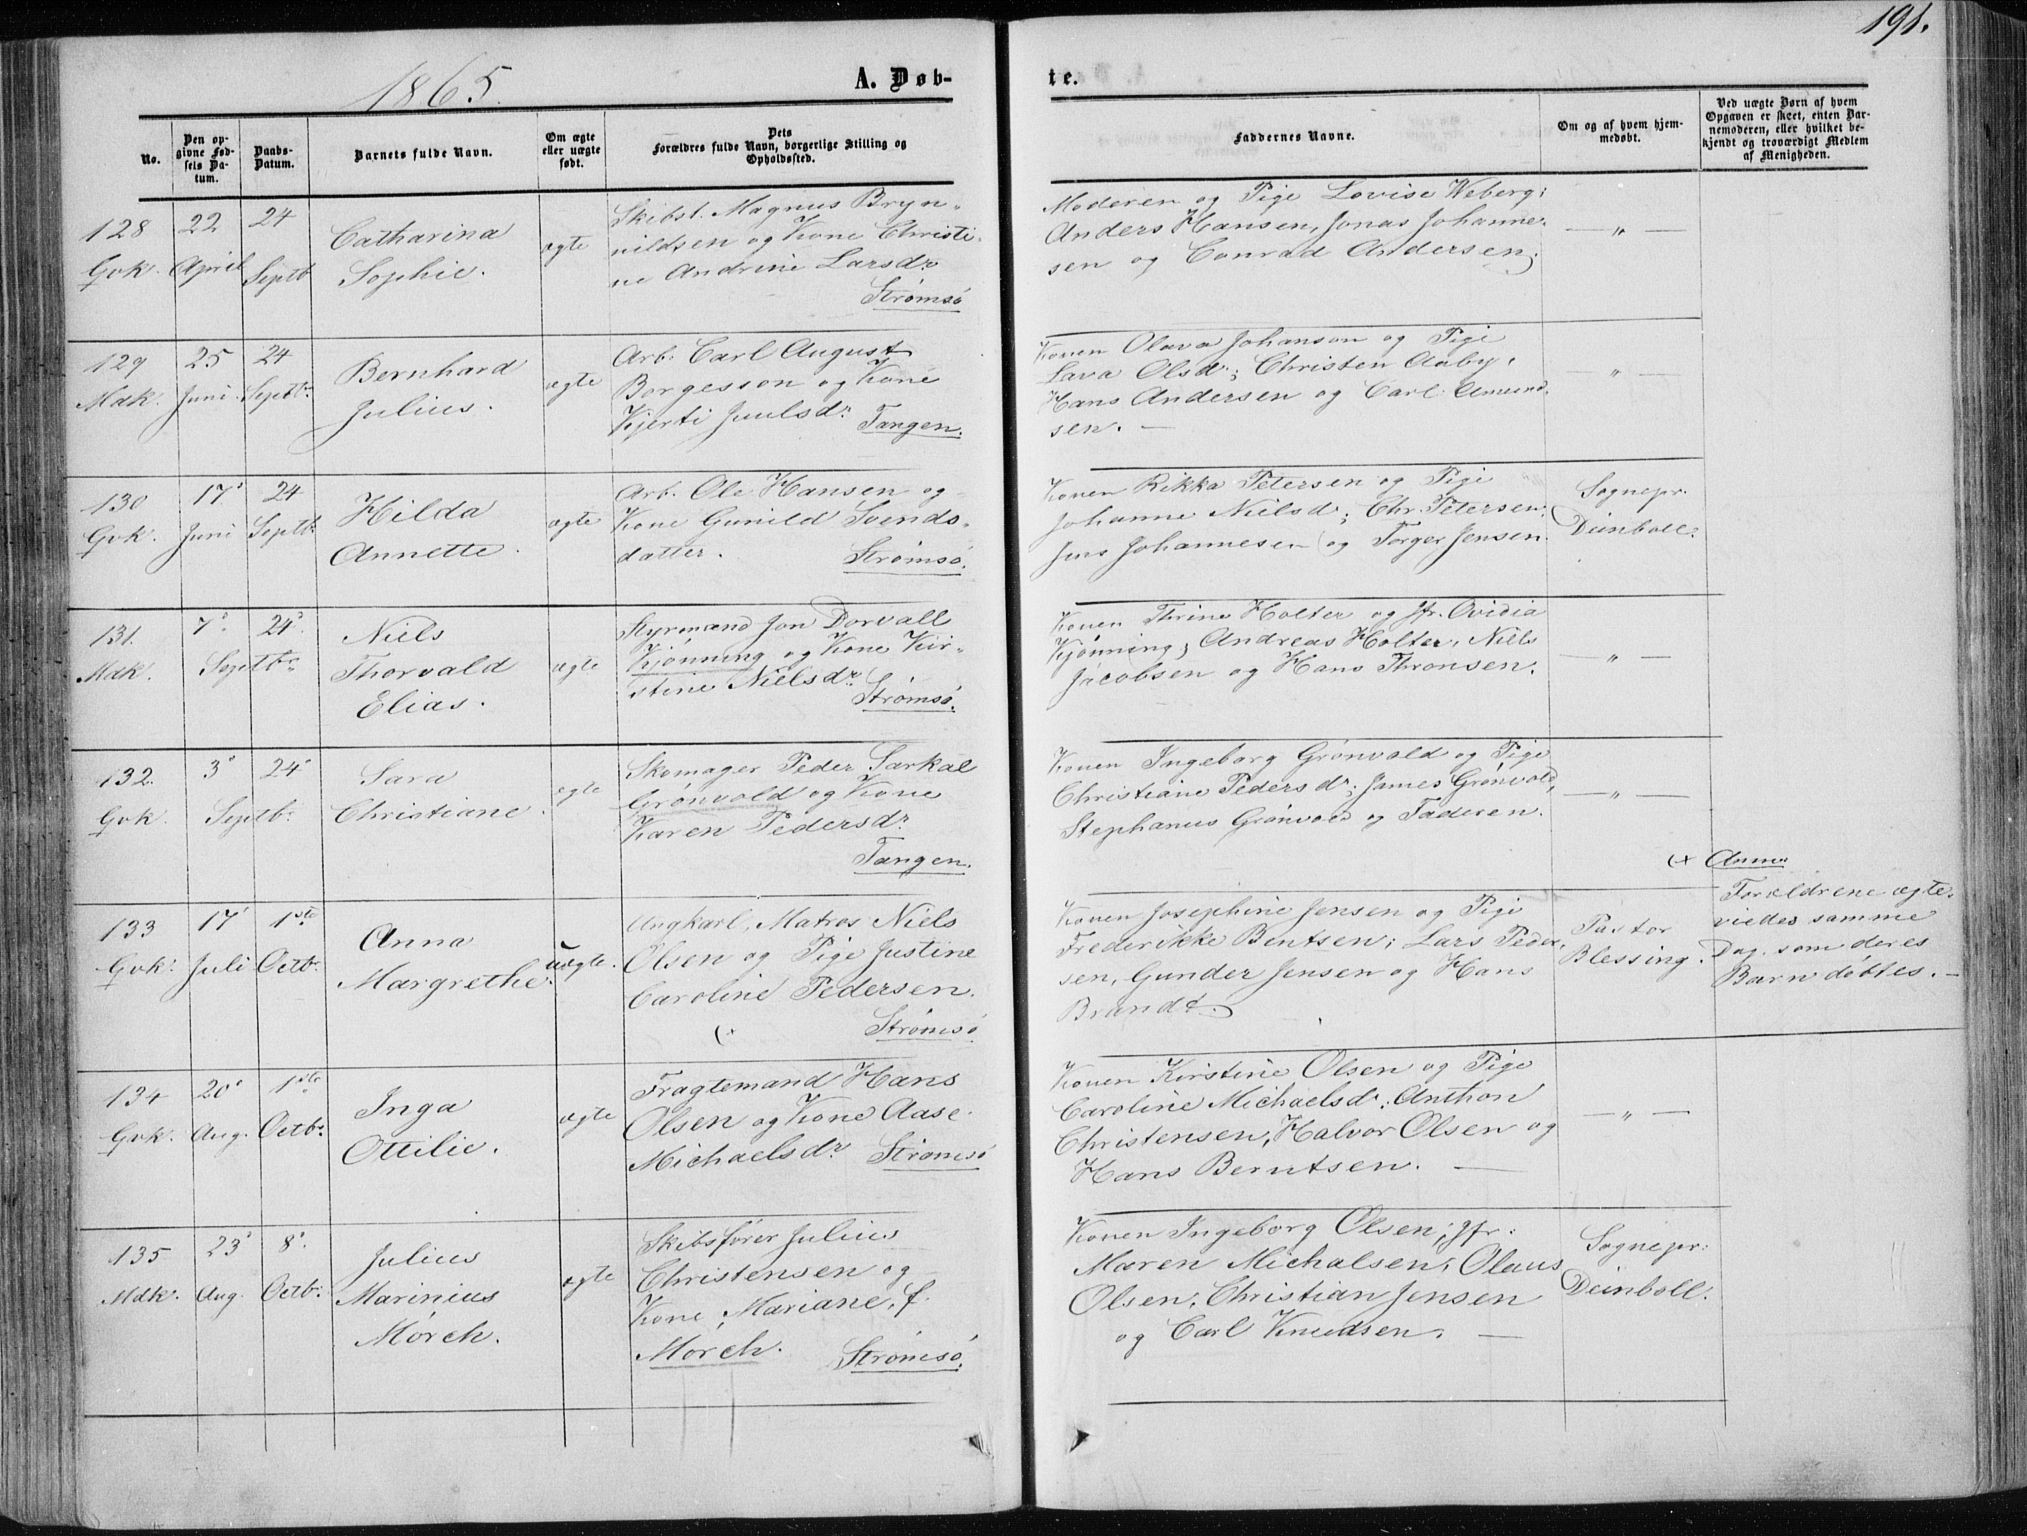 191.
1865.
A. Døb-
te.
No.
Den op-
givne Fød-
sels Da-
tum.
Daabs-
Datum.
Barnets fulde Navn.
Om ægte
eller uægte
født.
Dets
Forældres fulde Navn, borgerlige Stilling og
Opholdssted.
Faddernes Navne.
Om og af hvem hjem-
medøbt.
Ved uægte Børn af hvem
Opgaven er skeet, enten Bar-
nemoderen, eller hvilket be-
kjendt og troværdigt Medlem
af Menigheden.
128
Gvk.
22
April
24
Septb
Catharina
Sophie.
ægte
Skibst. Magnus Bryn-
nildsen og Kone Christi-
ne Andrine Larsdr.
Strømsø
Moderen og Pige Lovise Weberg;
Anders Hansen, Jonas Johanne-
sen og Conrad Andersen.
— „ —
129
Mdk.
25
Juni
24
Septbr.
Bernhard
Julius.
ægte
Arb. Carl August
Borgesson og Kone
Kjerti Juulsdr.
Tangen.
Konen Olava Johanson og Pige
Lava Olsdr.; Christen Aaby,
Hans Andersen og Carl Amund-
sen. —
„ —
130
Gvk.
17'
Juni
24
Septbr.
Hilda
Annette.
ægte
Arb. Ole Hansen og
Kone Gunild Svends-
datter.
Strømsø.
Konen Rikka Petersen og Pige
Johanne Nielsdr.; Chr. Petersen,
Jens Johannesen og Torger Jensen.
Sognepr.
Deinboll.
131.
Mdk.
7'
24'
Septbr.
Niels
Thorvald
Elias.
ægte
Styrmand Jon Dorvall
Kjønning og Kone Kir-
stine Nielsdr.
Strømsø.
Konen Thrine Holter og Jfr. Ovidia
Kjønning; Andreas Holter, Niels
Jacobsen og Hans Thronsen.
— „ —
132.
Gvk.
3'
24'
Septbr.
Sara
Christiane.
ægte
Skomager Peder Sarkal
Grønvold og Kone
Karen Pedersdr.
Tangen.
Konen Ingeborg Grønvold og Pige
Christiane Pedersdr.; James Grønvold,
Stephanus Grønvold og Faderen.
— „ —
133
Gvk.
17'
Juli
1ste
Octbr.
Anna
Margrethe.
uægte.
Ungkarl, Matros Niels
Olsen og Pige Justine
Caroline Pedersen.
(+ Strømsø
Konen Josephine Jensen og Pige
Frederikke Bentsen; Lars Peder-
sen, Gunder Jensen og Hans
Brandt.
Pastor
Blessing.
(+ Anm.
Forældrene ægte-
viedes samme
Dag, som deres
Barn døbtes. —
134
Gvk.
20'
Aug.
1ste
Octbr.
Inga
Ottilie.
ægte
Fragtemand Hans
Olsen og Kone Aase
Michaelsdr. Strømsø
Konen Kirstine Olsen og Pige
Caroline Michaelsdr.; Anthon
Christensen, Halvor Olsen og
Hans Berntsen. —
— „ —
135
Mdk.
23'
Aug.
8'.
Octbr.
Julius
Marinius
Mørch.
ægte
Skibsfører Julius
Christensen og
Kone, Mariane, f.
Mørch. Strømsø.
Konen Ingeborg Olsen; Jfr.
Maren Michalsen; Olaus
Olsen, Christian Jensen
og Carl Knudsen. —
Sognepr:
Deinboll.